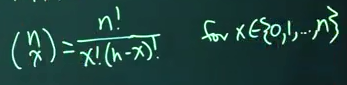 (n x) = n! / x!(n-x)! for x∈{0,1,...,n}